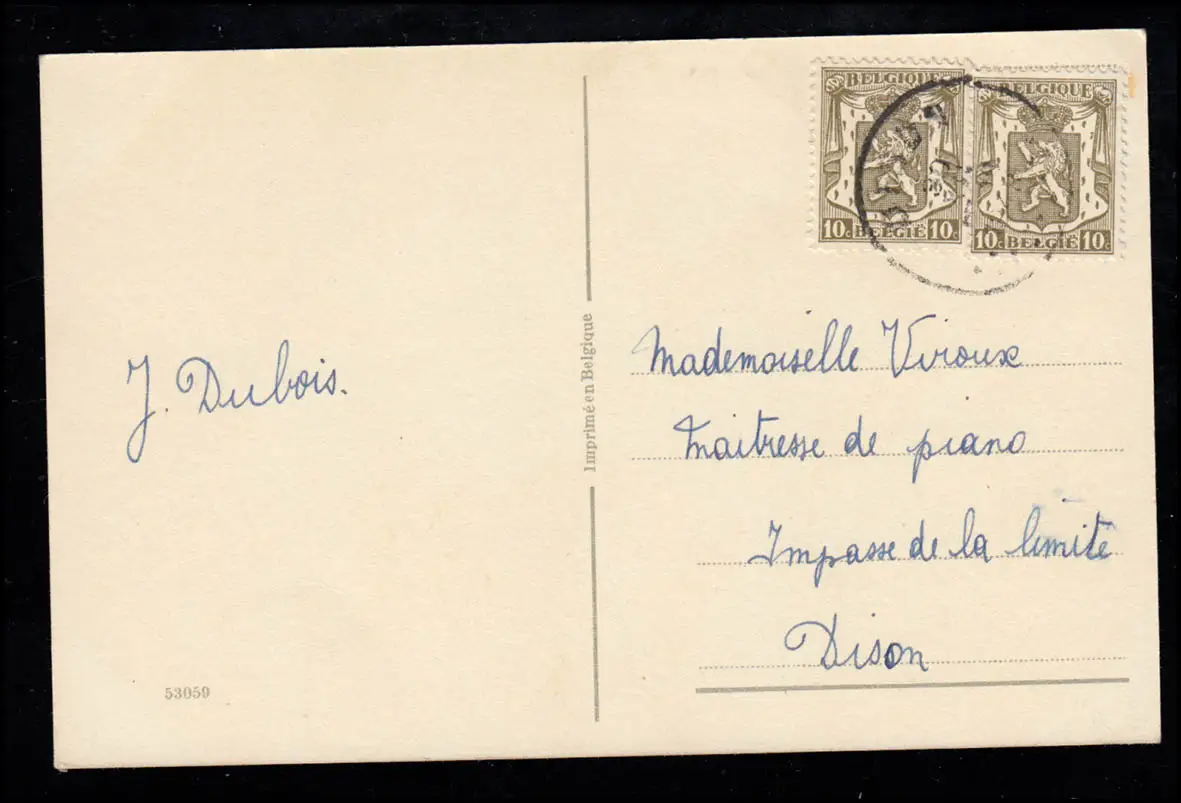 BELGIQUE
10c BELGIË 10c
BELGIQUE
10c BELGIË 10c
J. Dubois.
53059
Imprimé en Belgique
Mademoiselle Viroux
Maitresse de piano
Impasse de la limite
Dison